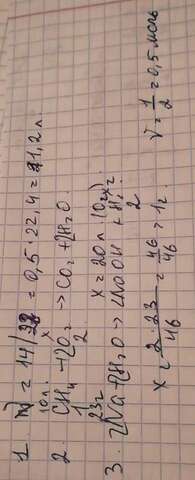 1. n) = 14/28 = 0,5·22,4 = 11,2 л.
10л. x
2. CH₄ + 2O₂ → CO₂ + 2H₂O
1 2
x = 20 л (O₂)
23г xг
3. 2Na + 2H₂O → 2NaOH + H₂
46 2
x = 2·23/46 = 46/46 = 1г.
V = 1/2 = 0,5 моль